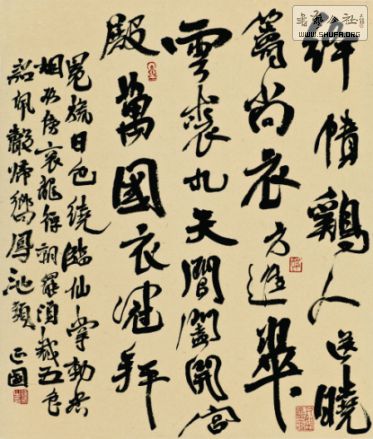 絳幘鷄人送曉
籌尚衣方進翠
雲裘九天閶闔開宮
殿萬國衣冠拜
冕旒日色繞臨仙掌動香
烟欲傍衮龍浮朝罷須裁五色
詔佩聲歸嚮鳳池頭 正國
書藝公社
WWW.SHUFA.ORG